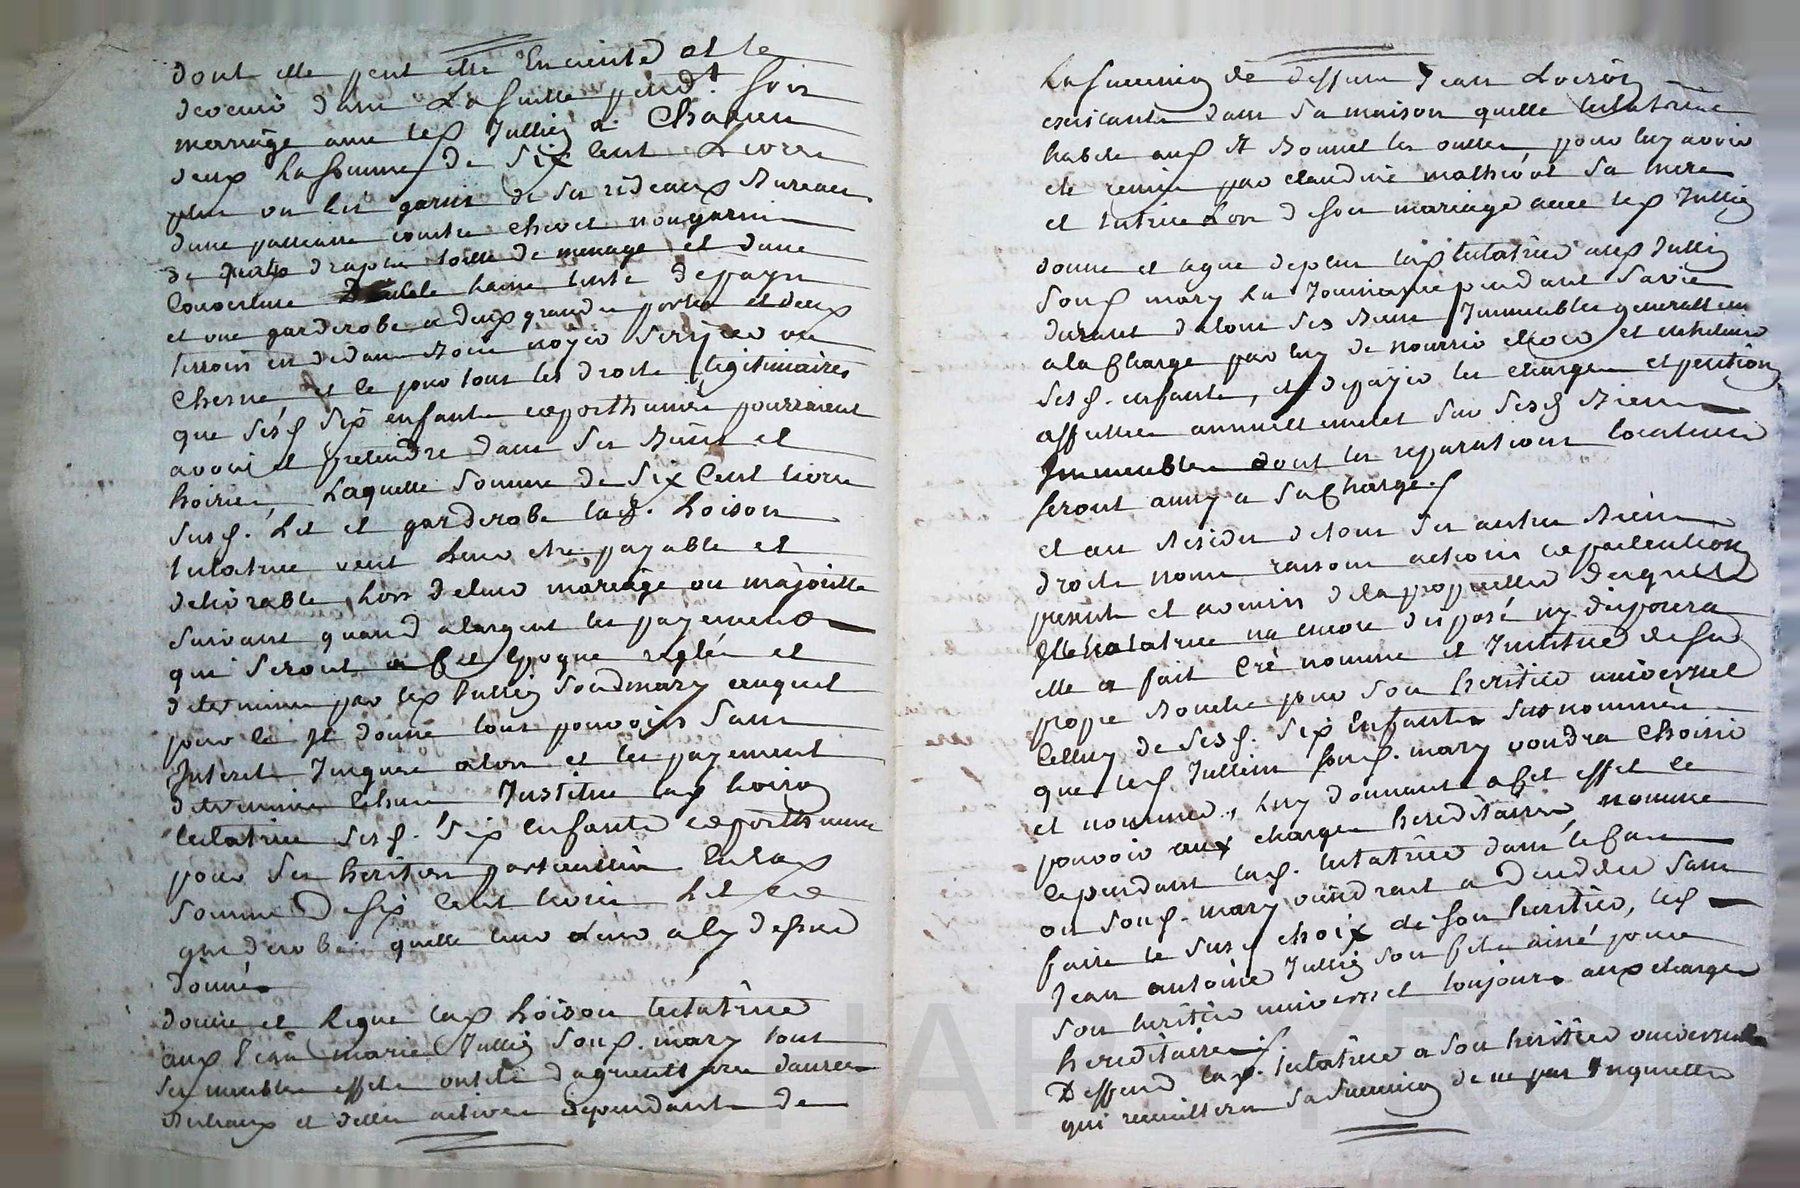 dont elle peut etre Enceinte et le
devenir dans La suitte pendt. son
marriage avec led Jullien a Chacun
deux La somme de Six Cent Livres
plus un lit garni de ses rideaux Bureau
dune paillasse coutre chevet non garni
de quatre draps toille de menage et dune
Couverture laine teinte depays
et une garderobe a deux grandes portes et deux
tirroirs en dedans Bois noyer Serizier ou
Chesne et ce pour tous les droits legitimaires
que sesd Six enfants et posthumes pourroient
avoir et pretendre dans ses Biens et
hoiries, Laquelle Somme de Six Cent livres
susd. Lit et garderobe lad. Loison
testatrice veut Leur etre payable et
delivrable Lors deleur mariage ou majorité
suivant quand alargent les payements
qui seront a Cet Epoque reglés et
determinés par led Jullien Sond mary auquel
pour ce Et donne tout pouvoirs Sans
Interets Jusques alors et les payement
determinés Institue lad Loison
testatrice sesd. Six enfants et posthumes
pour ses heritiers particulliers En lad
somme de Six Cent livres Lit et
garderobe quelle leur a cy dessus
donné
donne et Legue lad Loison testatrice
aud Jean marie Jullien Sond. mary tous
ses meubles effets outils dagricultures danrées
Bestiaux et dettes actives dependants de
La succession de deffunt Jean Loison
existants dans sa maison quelle testatrice
habite aud St Bonnet les oulles pour luy avoir
été remis par claudine mathivot sa mere
et tutrice Lors deson mariage avec led Jullien
donne et legue deplus lad testatrice aud Jullien
Sond mary La Jouissance pendant savie
durant detous ses Biens Immeubles generallement
ala Charge par luy de nourrir elever et entretenir
sesd. enfants, et depayer les charges et pention
affectées annuellement sur sesd Biens
Immeubles dont les reparations locatives
seront aussy a sa Charge.
et au Residu detous ses autres Biens
droits noms raisons actions et pretentions
present et avenirs dela propriettée desquels
Elle testatrice na encore disposé ny disposera
elle a fait Créé nommé et Institué de sa
propre Bouche pour son heritier universel
Celluy de sesd. Six Enfants susnommés
que led Jullien sond. mary voudra choisir
et nommer, luy donnant a Cet effet le
pouvoir aux charges hereditaires, nomme
cependant lad. testatrice dans le Cas
ou sond. mary viendroit a deceder sans
faire le susd choix de son heritier, led
Jean antoine Jullien son fils ainé pour
son heritier universel toujours aux charges
hereditaires.
Deffend lad. testatrice a son heritier universel
qui recuillera sa succession de ne pas Inquietter